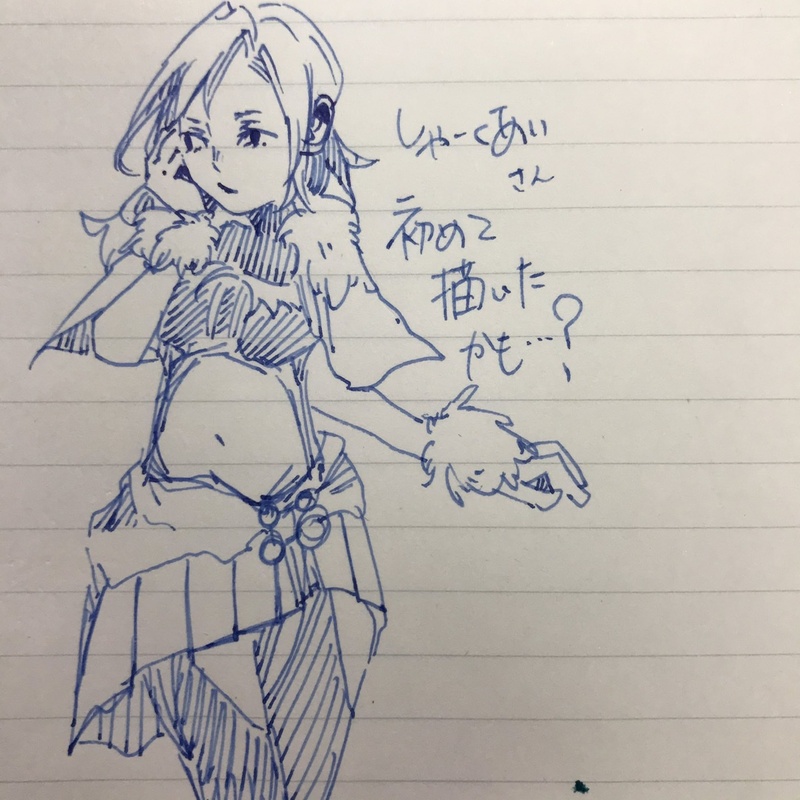 しゃーくあい
さん
初めて
描いた
かも…?